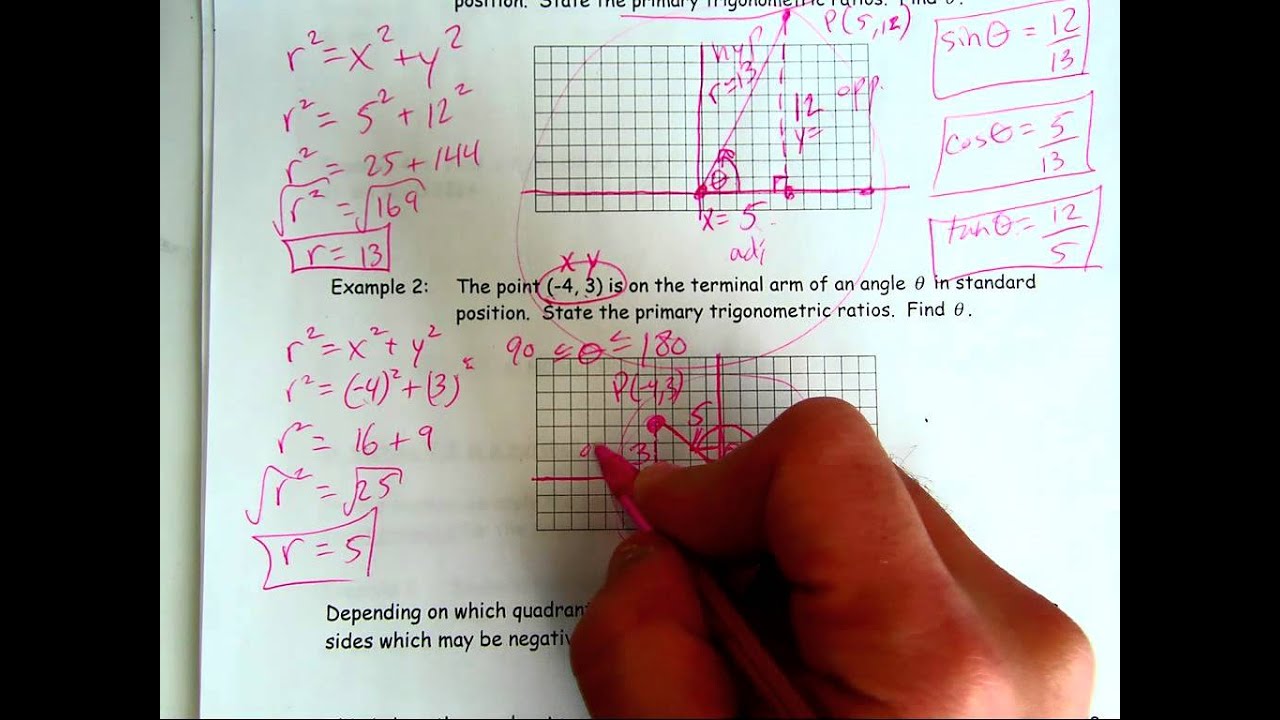 position. State the primary trigonometric ratios. Find θ.
r² = x² + y²
r² = 5² + 12²
r² = 25 + 144
√r² = √169
r = 13
P(5,12)
hyp
r=13
12
y=
opp.
θ
x = 5
adj
sinθ = 12/13
cosθ = 5/13
tanθ = 12/5
x y
Example 2: The point (-4, 3) is on the terminal arm of an angle θ in standard
position. State the primary trigonometric ratios. Find θ.
90 ≤ θ ≤ 180
r² = x² + y²
r² = (-4)² + (3)²
r² = 16 + 9
√r² = √25
r = 5
P(-4,3)
5
3
Depending on which
sides which may be